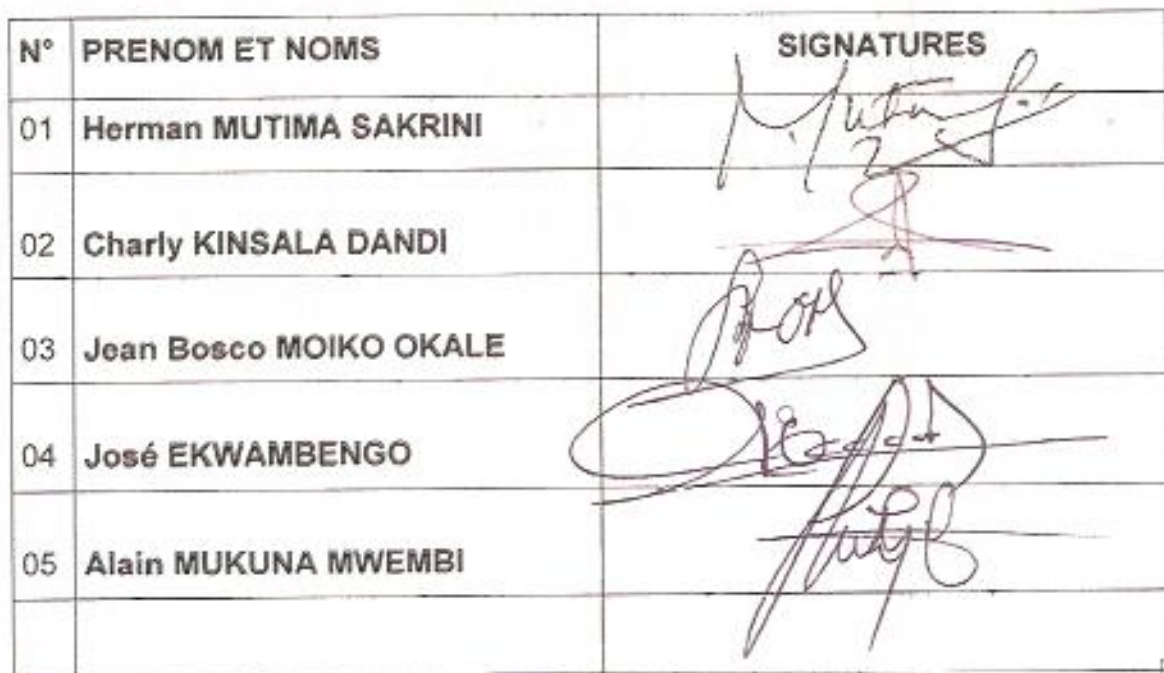 N° PRENOM ET NOMS SIGNATURES
01 Herman MUTIMA SAKRINI
02 Charly KINSALA DANDI
03 Jean Bosco MOIKO OKALE
04 José EKWAMBENGO
05 Alain MUKUNA MWEMBI